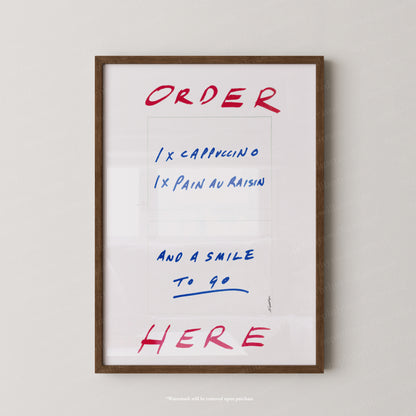 ORDER
1 x CAPPUCCINO
1 x PAIN AU RAISIN
AND A SMILE
TO GO
HERE
*Watermark will be removed upon purchase.